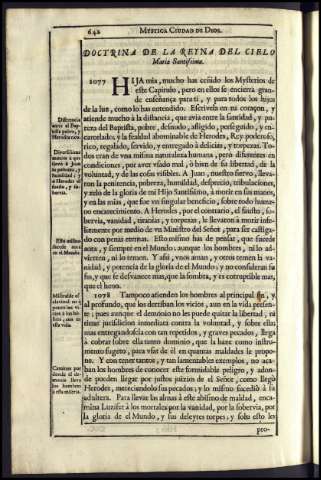 642 MYSTICA CIUDAD DE DIOS.
DOCTRINA DE LA REYNA DEL CIELO
Maria Santissima.
1077 HIJA mia, mucho has ceñido los Mysterios de
este Capitulo, pero en ellos se encierra gran-
de enseñança para ti, y para todos los hijos
de la luz, como lo has entendido. Escrivela en tu coraçon, y
atiende mucho à la distancia, que avia entre la santidad, y pu-
reza del Baptista, pobre, desnudo, afligido, perseguido, y en-
carcelado; y la fealdad abominable de Herodes, Rey poderoso,
rico, regalado, servido, y entregado à delicias, y torpezas. To-
dos eran de vna misma naturaleza humana, pero diferentes en
condiciones, por aver vsado mal, ò bien de su libertad, de la
voluntad, y de las cosas visibles. A Juan, nuestro siervo, lleva-
ron la penitencia, pobreza, humildad, desprecio, tribulaciones,
y zelo de la gloria de mi Hijo Santissimo, à morir en sus manos,
y en las mias, que fue vn singular beneficio, sobre todo huma-
no encarecimiento. A Herodes, por el contrario, el fausto, so-
bervia, vanidad, tiranias, y torpezas, le llevaron à morir infe-
lizmente por medio de vn Ministro del Señor, para ser castiga-
do con penas eternas. Esto mismo has de pensar, que sucede
aora, y siempre en el Mundo; aunque los hombres, ni lo ad-
vierten, ni lo temen. Y assi, vnos aman, y otros temen la va-
nidad, y potencia de la gloria de el Mundo; y no consideran su
fin, y que se desvanece mas, que la sombra, y es corruptible mas,
que el heno.
1078 Tampoco atienden los hombres al principal fin, y
al profundo, que los derriban los vicios, aun en la vida presen-
te; pues aunque el demonio no les puede quitar la libertad, ni
tiene jurisdicion inmediata contra la voluntad, y sobre ella;
mas entregandosela con tan repetidos, y graves pecados, llega
à cobrar sobre ella tanto dominio, que la haze como instru-
mento sugeto, para vsar de èl en quantas maldades le propo-
ne. Y con tener tantos, y tan lamentables exemplos, no aca-
ban los hombres de conocer este formidable peligro, y adon-
de pueden llegar por justos juizios de el Señor, como llegò
Herodes, mereciendolo sus pecados; y lo mismo sucediò à su
adultera. Para llevar las almas à este abismo de maldad, enca-
mina Luzifer à los mortales por la vanidad, por la sobervia, por
la gloria de el Mundo, y sus deleytes torpes; y solo esto les
pro-
Distancia
entre el Bap-
tista pobre, y
Herodes rico.
Esto mismo
sucede aora
en el Mundo.
Caminos por
donde el de-
monio lleva
los hombres
à esta miseria.